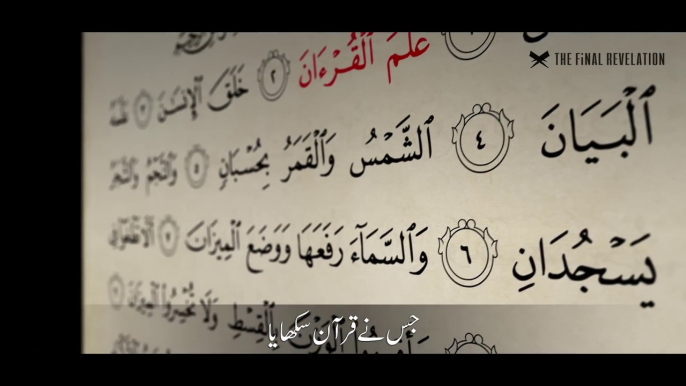 THE FINAL REVELATION
عَلَّمَ ٱلْقُرْءَانَ ٢ خَلَقَ ٱلْإِنسَٰنَ ٣
ٱلْبَيَانَ ٤ ٱلشَّمْسُ وَٱلْقَمَرُ بِحُسْبَانٍ ٥ وَٱلنَّجْمُ وَٱلشَّجَرُ
يَسْجُدَانِ ٦ وَٱلسَّمَآءَ رَفَعَهَا وَوَضَعَ ٱلْمِيزَانَ ٧
ٱلْقِسْطِ وَلَا تُخْسِرُوا۟ ٱلْمِيزَانَ
جس نے قرآن سکھایا